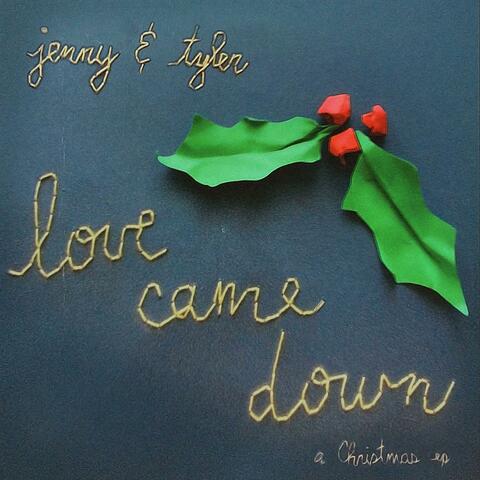 jenny & tyler
love
came
down
a Christmas ep